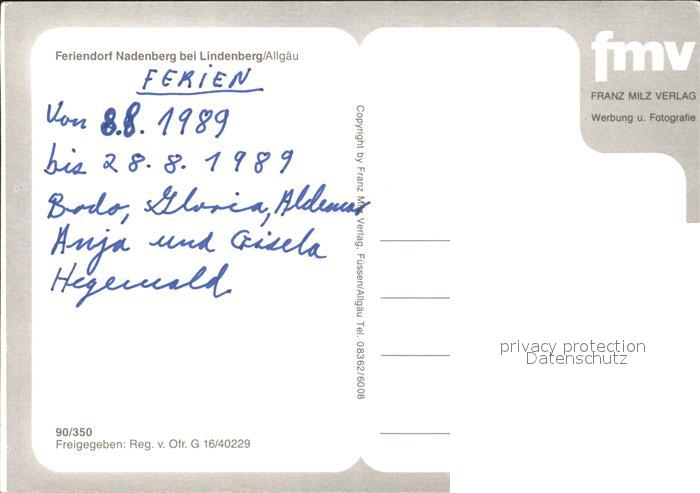 Feriendorf Nadenberg bei Lindenberg/Allgäu
FERIEN
Von 8.8. 1989
bis 28.8. 1989
Bodo, Gloria, Aldemar
Anja und Gisela
Hegewald.
90/350
Freigegeben: Reg. v. Ofr. G 16/40229
Copyright by Franz Milz Verlag, Füssen/Allgäu Tel. 08362/6008
fmv
FRANZ MILZ VERLAG
Werbung u. Fotografie
privacy protection
Datenschutz